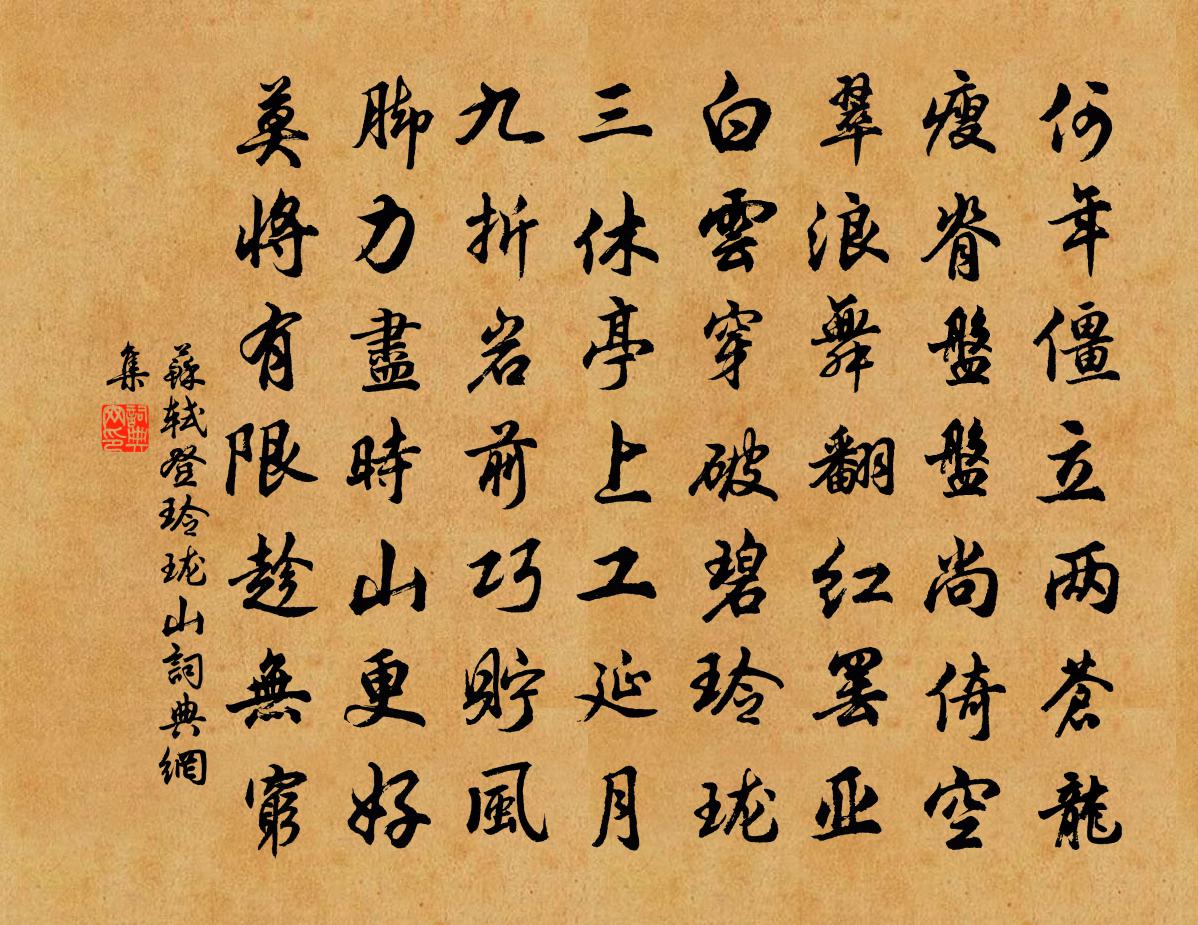 何年僵立两蒼龍
瘦脊盤盤尚倚空
翠浪舞翻红罢亚
白雲穿破碧玲珑
三休亭上工延月
九折岩前巧貯風
脚力盡時山更好
莫將有限趁無窮
蘇軾登玲珑山詞典網
集
詞典
网印